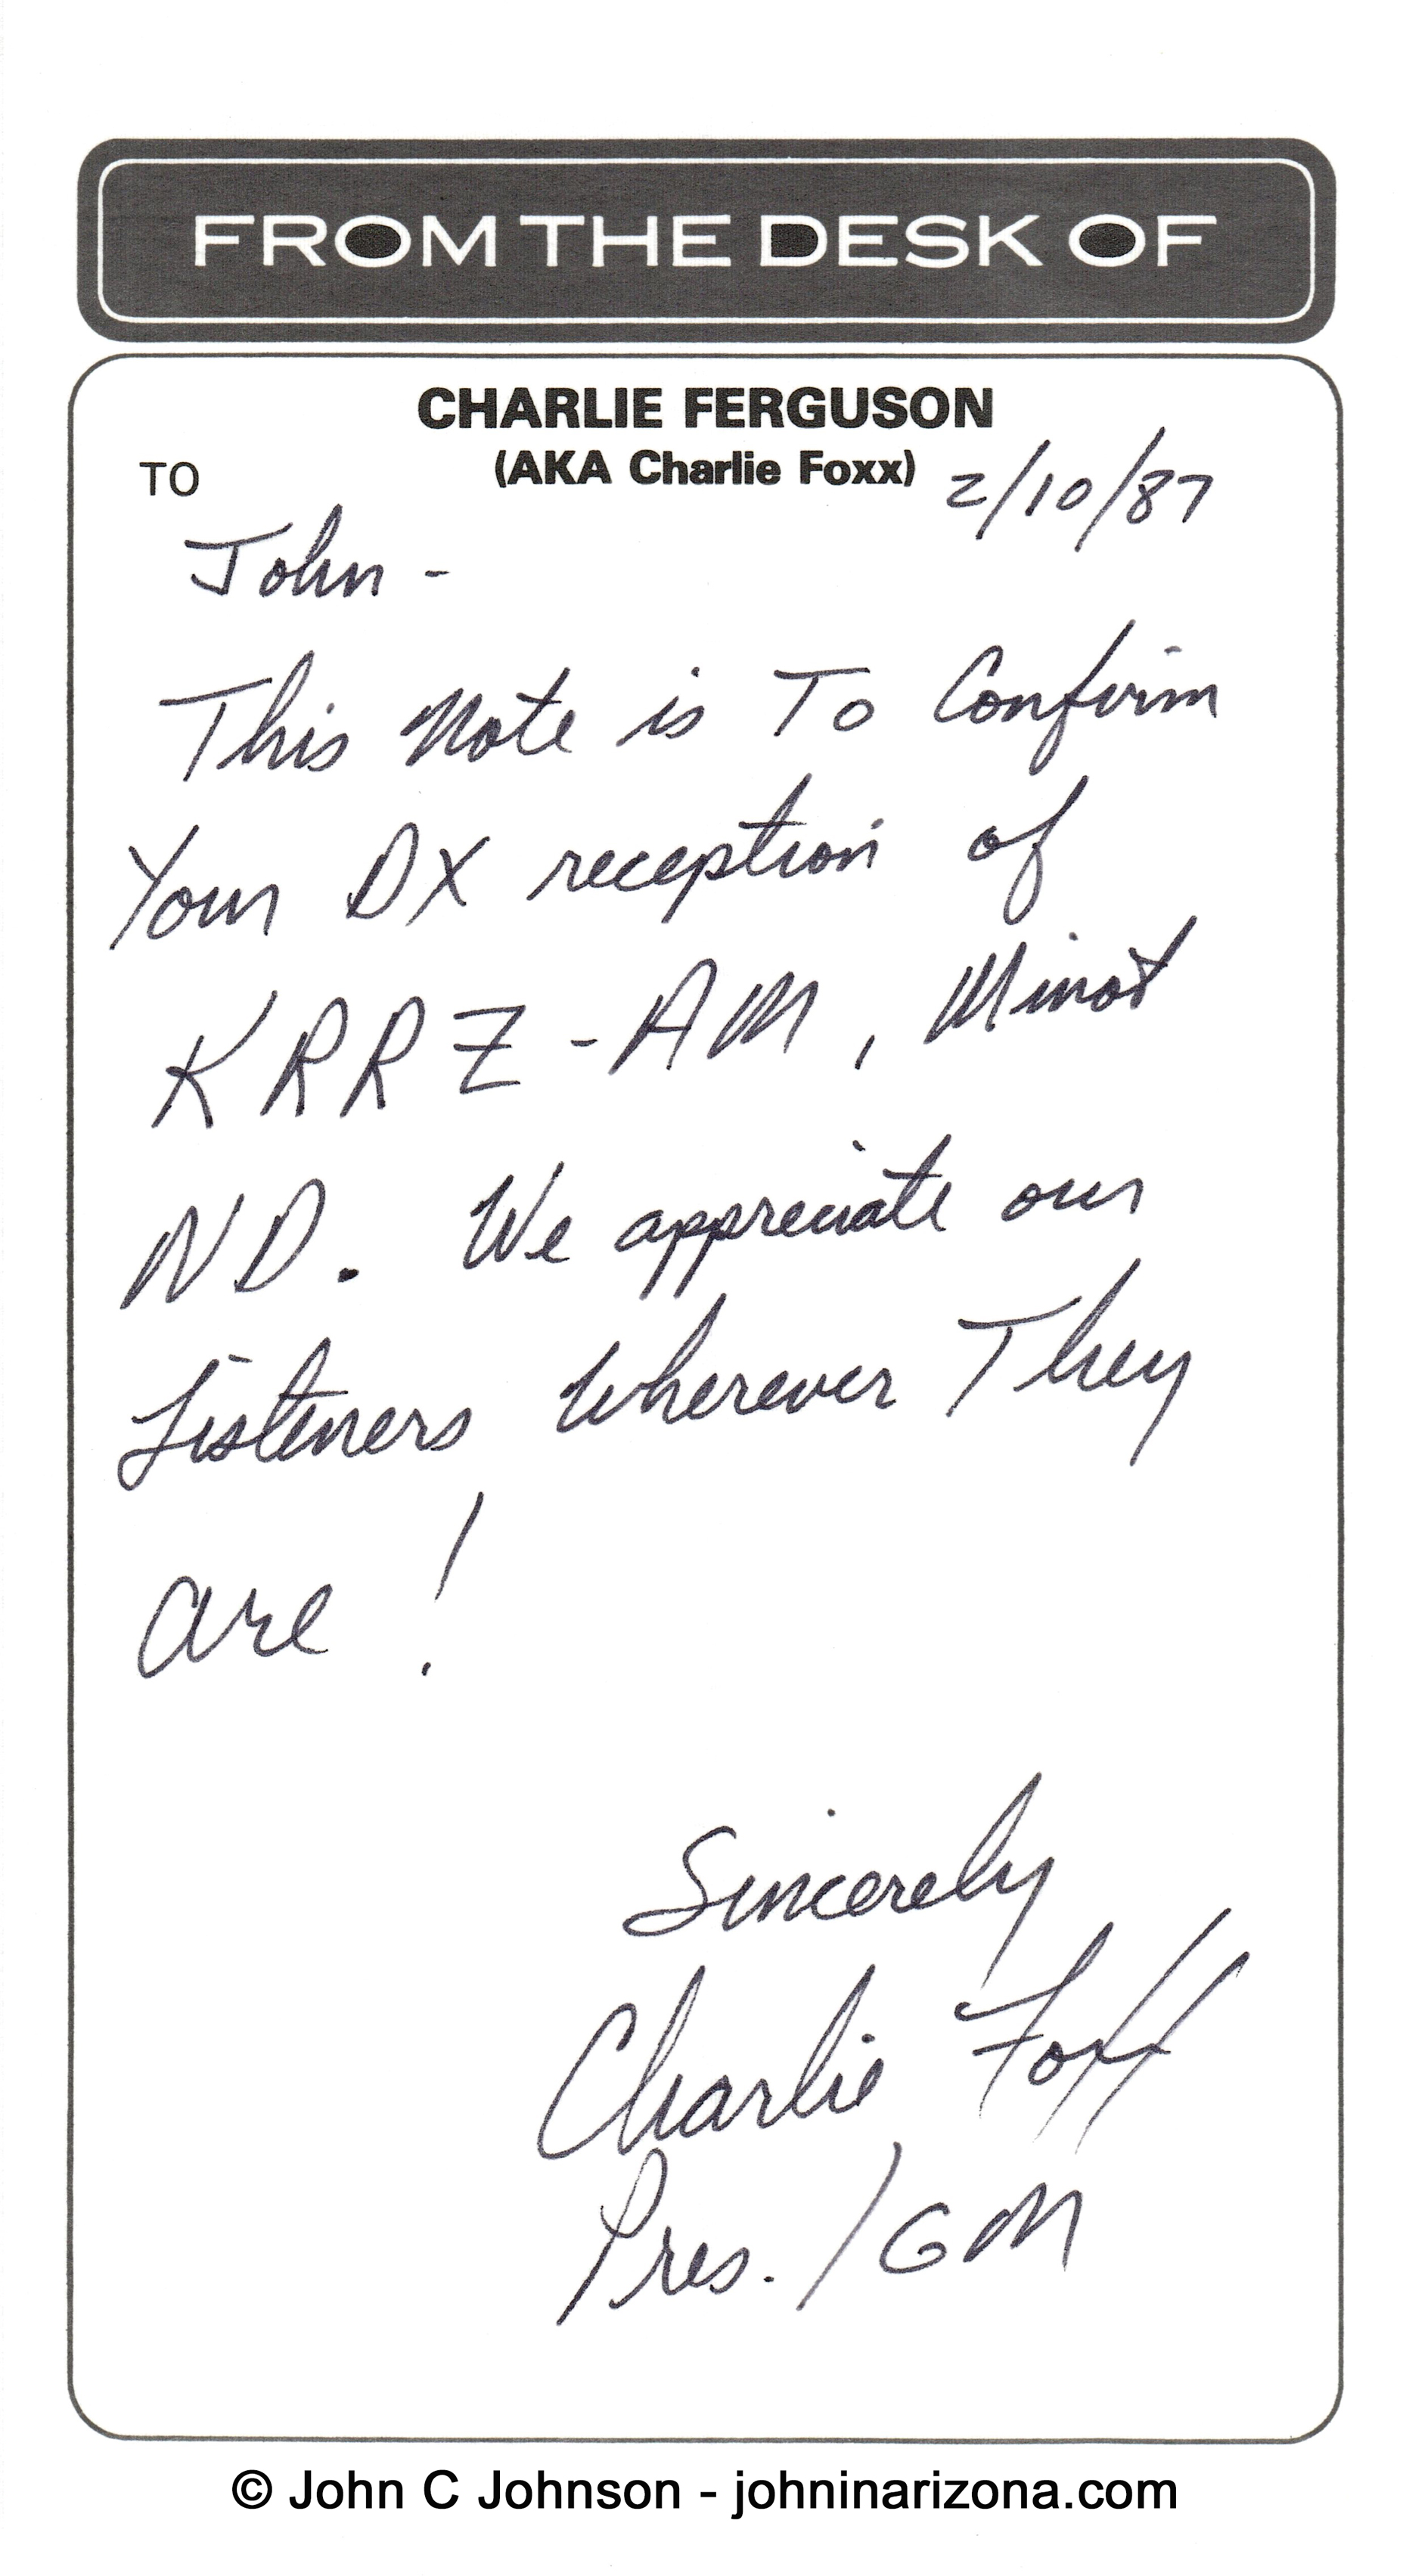 FROM THE DESK OF
CHARLIE FERGUSON
(AKA Charlie Foxx)
TO
2/10/87
John -
This Note is To Confirm
Your DX reception of
KRRZ-AM, Minot
ND. We appreciate our
Listeners Wherever They
are!
Sincerely
Charlie Foxx
Pres./GM
© John C Johnson - johninarizona.com